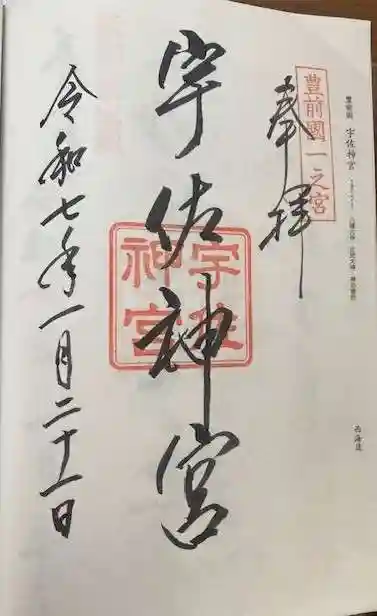 豊前國 宇佐神宮
西海道
豊前國一之宮
奉拝
宇佐神宮
宇佐神宮
令和七年一月二十一日